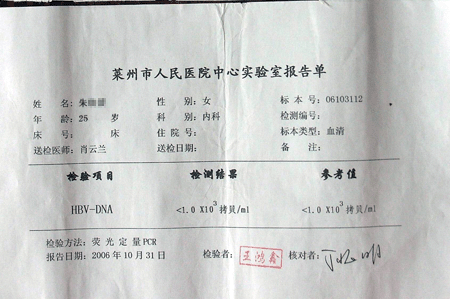 莱州市人民医院中心实验室报告单
姓 名: 朱 性 别: 女 标 本 号: 06103112
年 龄: 25 岁 科 别: 内科 检测编号:
床 号: 床 住 院 号: 标本类型: 血清
送检医师: 肖云兰 送检日期: 备 注:
检验项目 检测结果 参考值
HBV-DNA <1.0 X10³ 拷贝/ml <1.0 X10³ 拷贝/ml
检验方法: 荧 光 定 量 PCR
报告日期: 2006 年 10 月 31 日 检验者: 王鸿鑫 核对者: